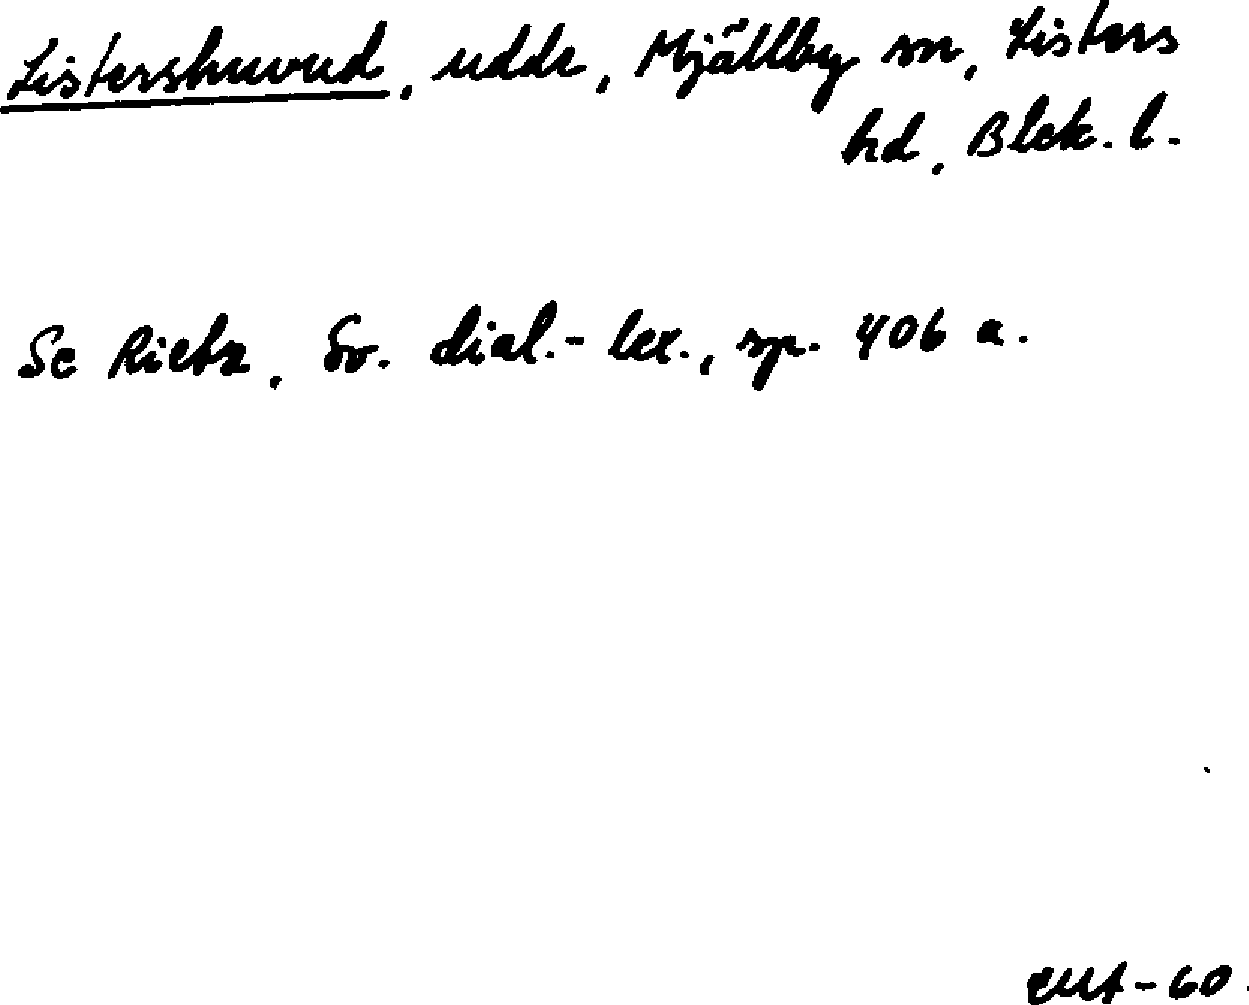 Listershuvud, udde, Mjällby sn, Listers
hd, Blek. l.
Se Rietz, Sv. dial.-lex., sp. 406 a.
-60.